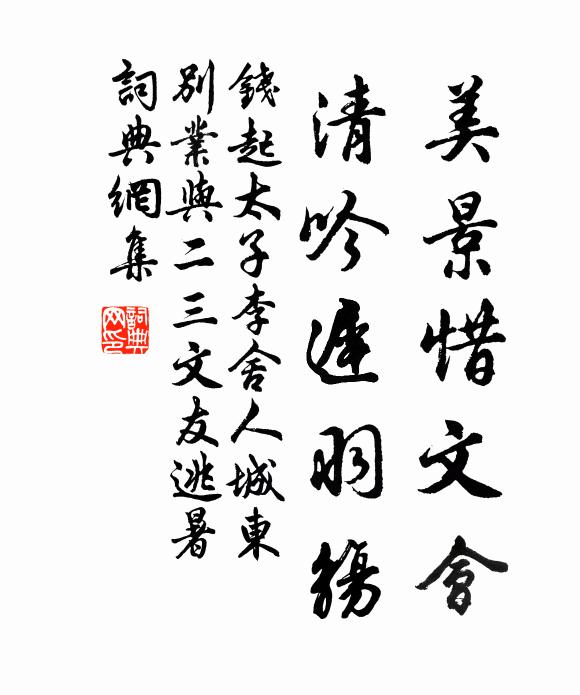 美景惜文會
清吟遲羽觴
錢起太子李舍人城東
別業與二三文友逃暑
詞典網集
詞典网印